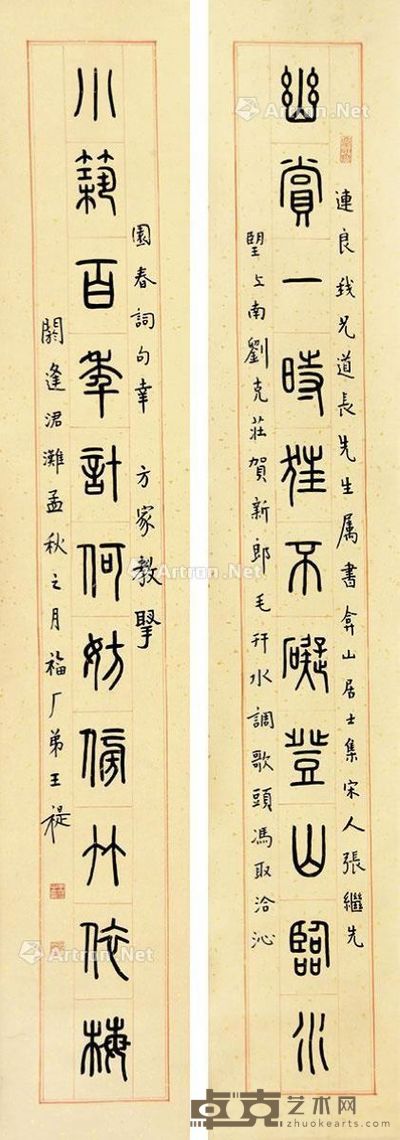 幽賞一時狂不礙登山臨水
連良 兄道長先生属書弇山居士集宋人張繼先
望江南劉克莊賀新郎毛幵水調歌頭馮取洽沁
小築百年計何妨傍竹依梅
園春詞句幸 方家教
閼逢涒灘孟秋之月福厂弟王禔
Artron.Net
卓克艺术网
zhuokearts.com